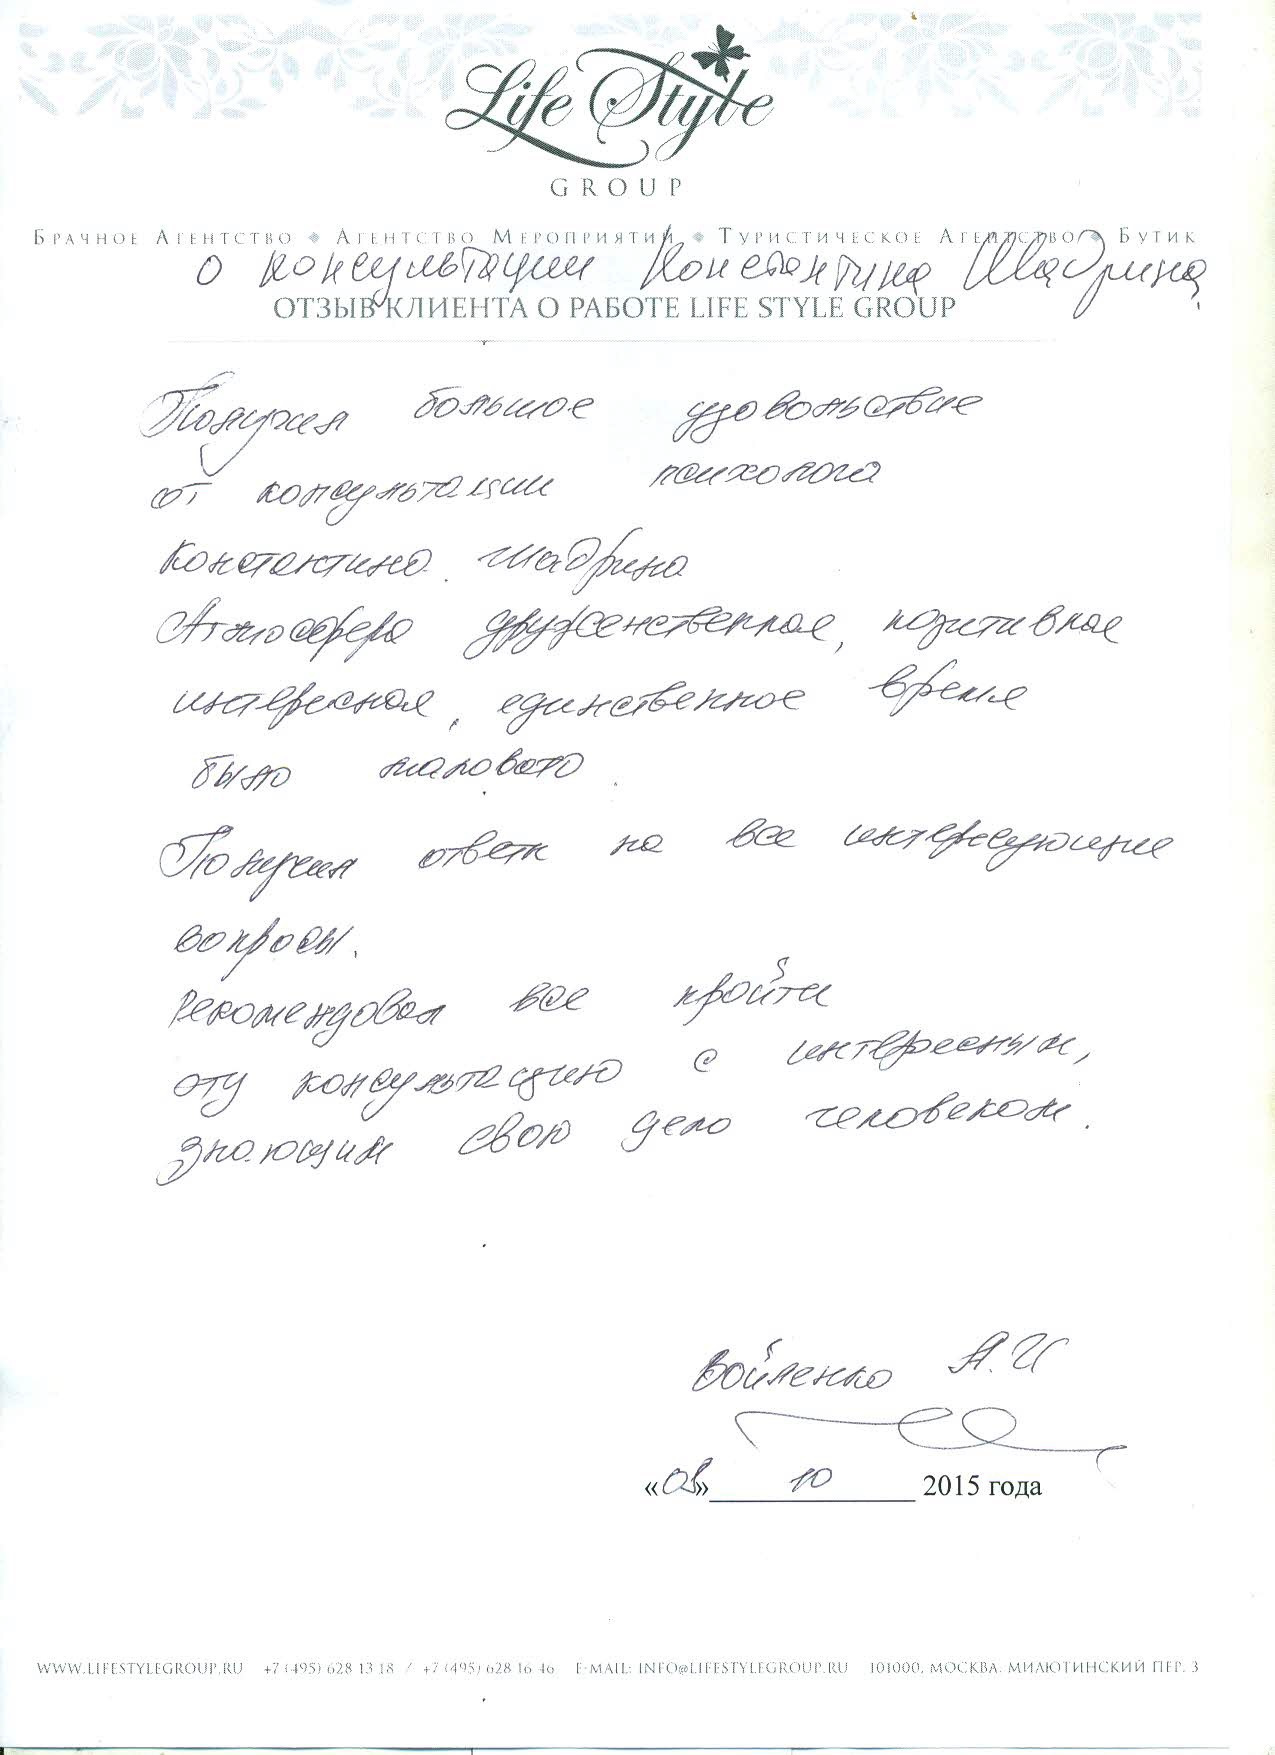 Life Style
GROUP
Брачное Агентство ◆ Агентство Мероприятий ◆ Туристическое Агентство ◆ Бутик
о консультации Константина Шадрина
ОТЗЫВ КЛИЕНТА О РАБОТЕ LIFE STYLE GROUP
Получил большое удовольствие
от консультации психолога
Константина Шадрина
Атмосфера дружественная, позитивная
интересная, единственное время
было маловато.
Получил ответы на все интересующие
вопросы.
Рекомендовал все пройти
эту консультацию с интересным,
знающим свою дело человеком.
Войленко А.И
«03» 10 2015 года
WWW.LIFESTYLEGROUP.RU +7 (495) 628 13 18 / +7 (495) 628 16 46 E-MAIL: INFO@LIFESTYLEGROUP.RU 101000, МОСКВА, МИЛЮТИНСКИЙ ПЕР. 3